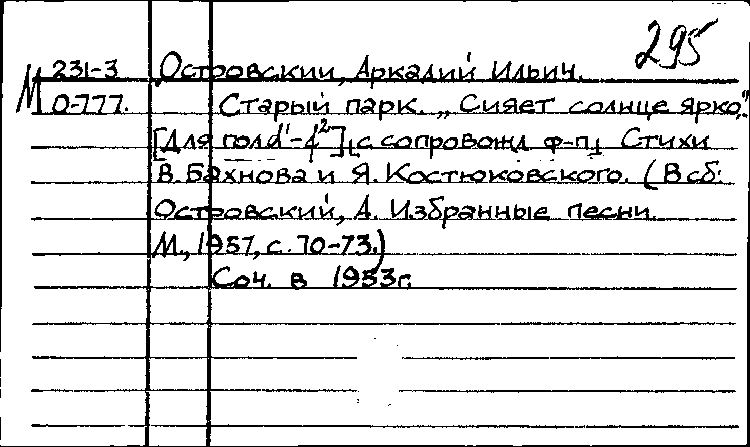 295
М 231-3 Островский, Аркадий Ильич.
О-777. Старый парк. „Сияет солнце ярко."
[Для гол d¹-f²] с сопровожд ф-п. Стихи
В. Бахнова и Я. Костюковского. (В сб:
Островский, А. Избранные песни.
М., 1957, с. 70-73.)
Соч. в 1953г.